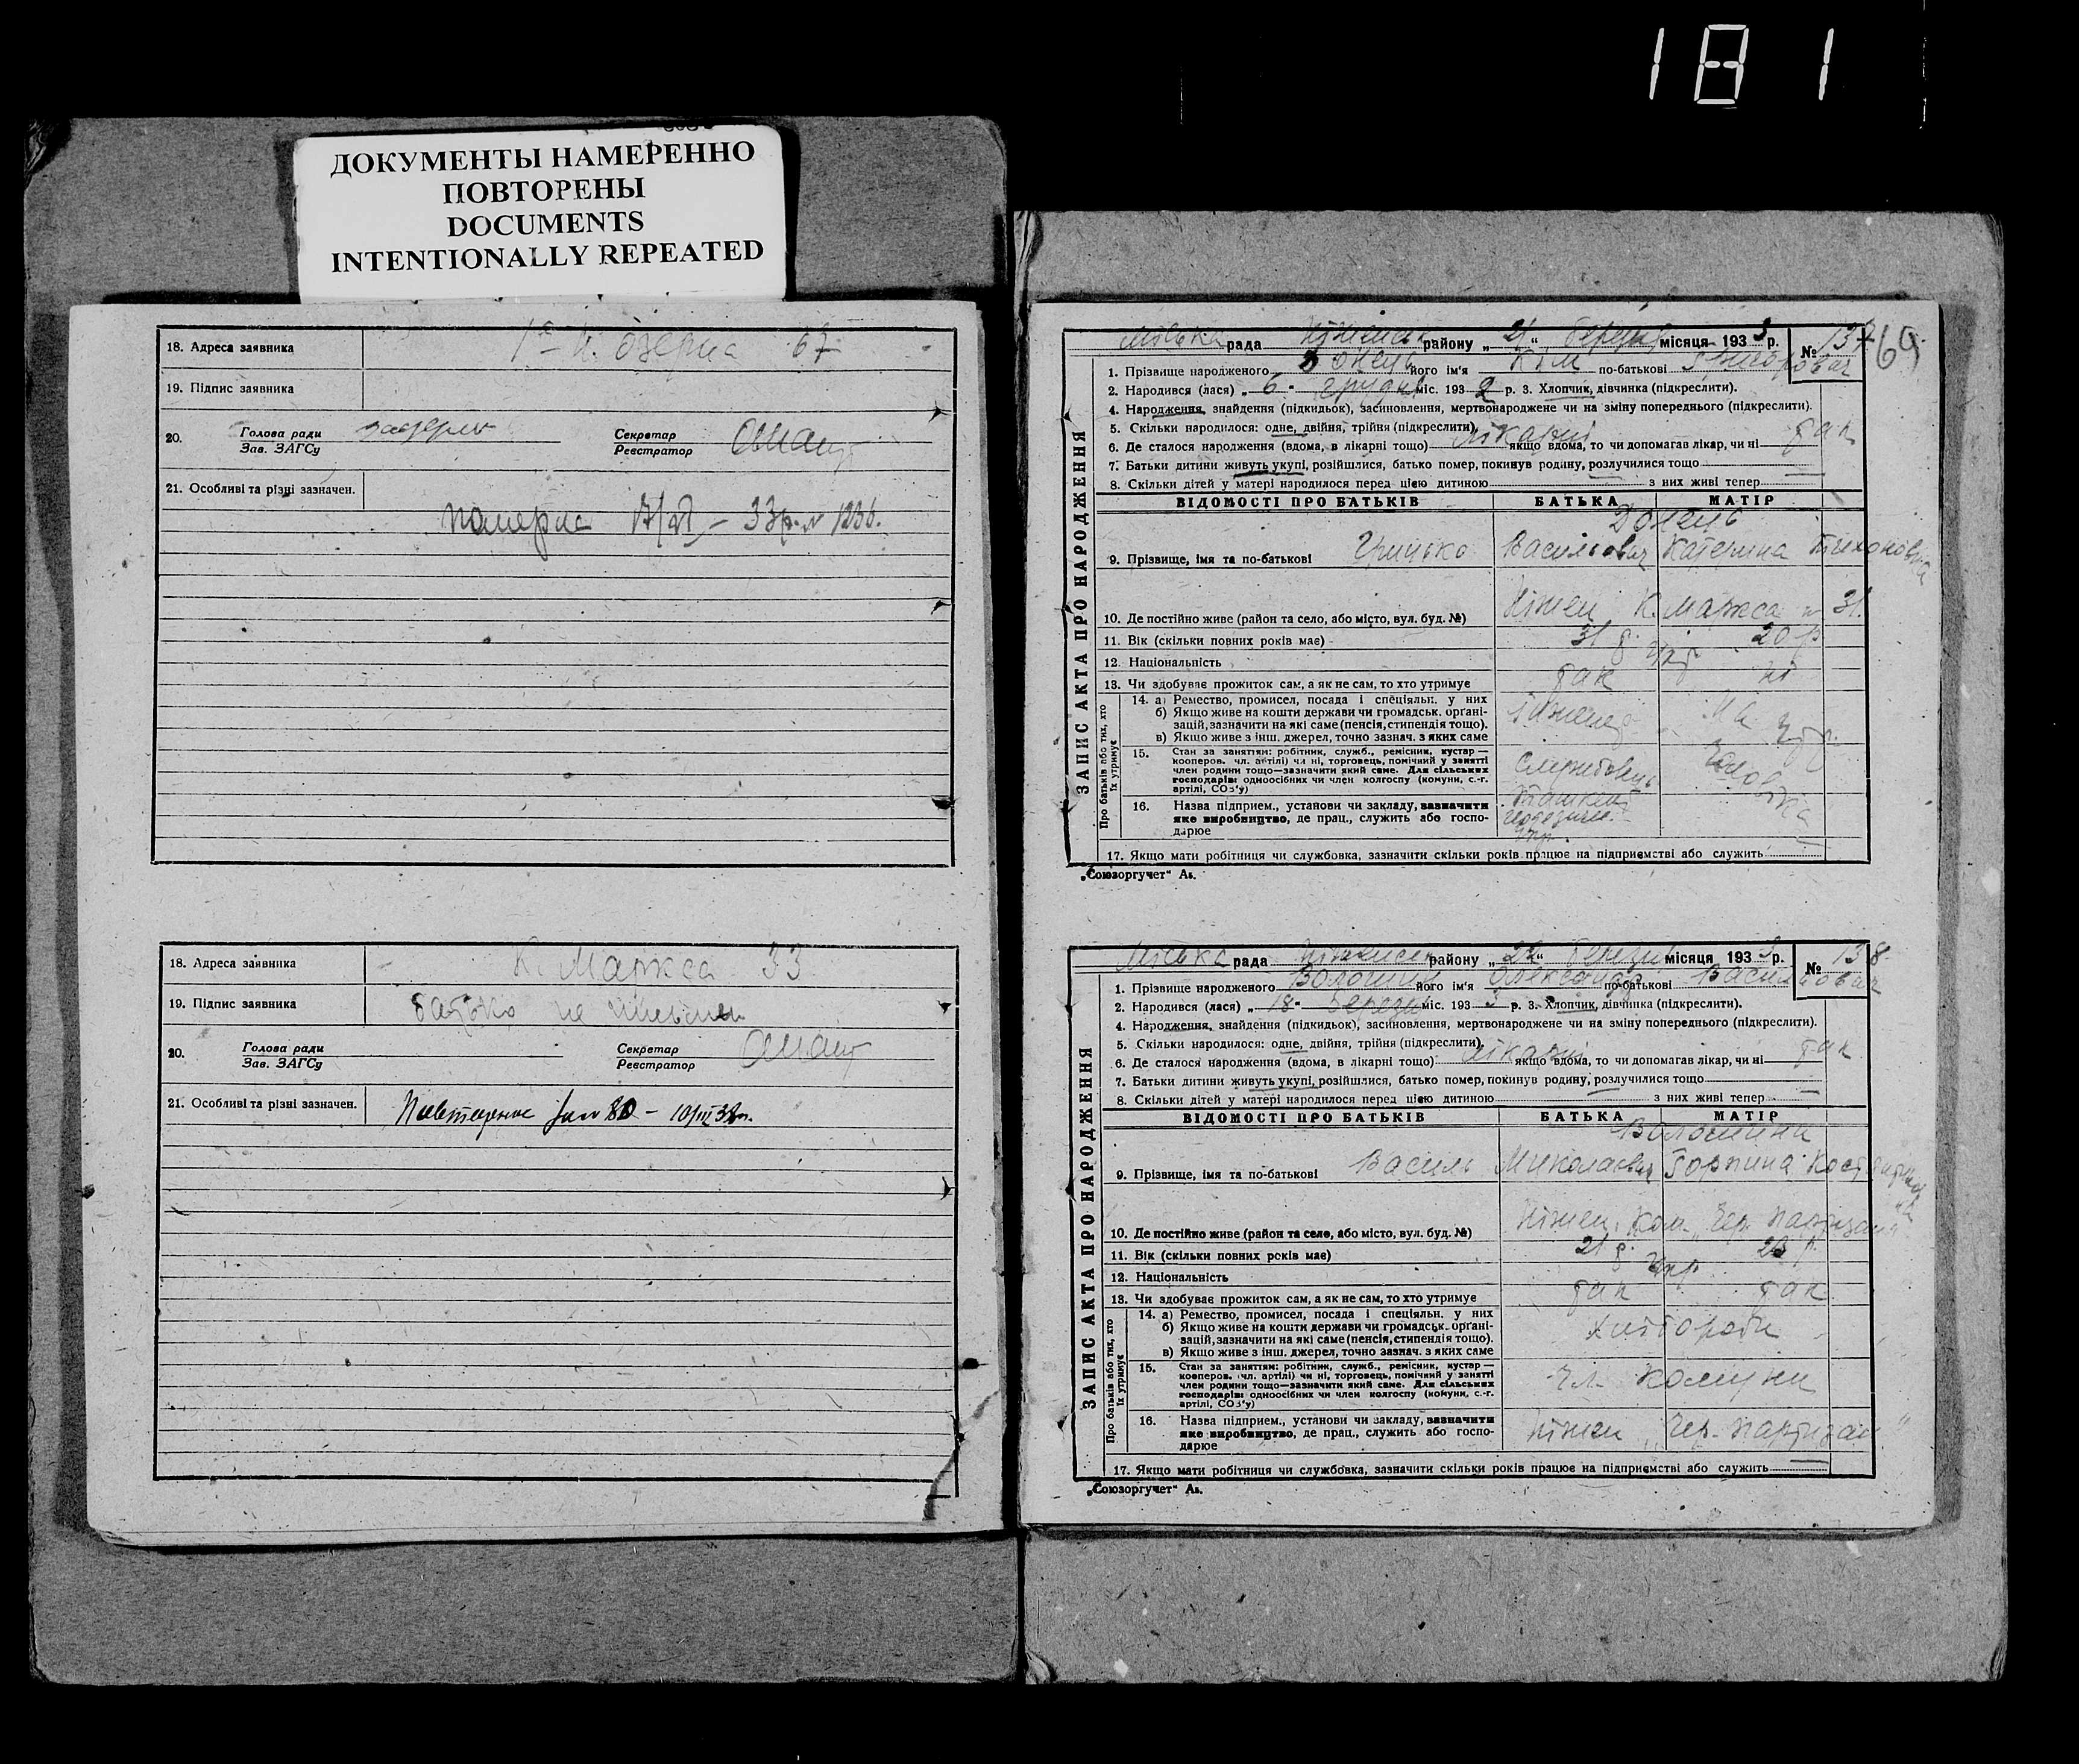 181
ДОКУМЕНТЫ НАМЕРЕННО
ПОВТОРЕНЫ
DOCUMENTS
INTENTIONALLY REPEATED
18. Адреса заявника озерна 67
19. Підпис заявника
20. Голова ради Секретар
Зав. ЗАГСу Реєстратор
21. Особливі та різні зазначен.
померла 33р. № 1236.
18. Адреса заявника К. Маркса 33
19. Підпис заявника батько не
20. Голова ради Секретар
Зав. ЗАГСу Реєстратор
21. Особливі та різні зазначен. 80 -
69
ЗАПИС АКТА ПРО НАРОДЖЕННЯ
Міська рада Ніженськ району „21“ березня місяця 1933 р. № 137
1. Прізвище народженого Донець його ім'я Кім по-батькові Григорович
2. Народився (лася) „6" грудня міс. 1932 р. 3. Хлопчик, дівчинка (підкреслити).
4. Народження, знайдення (підкидьок), засиновлення, мертвонароджене чи на зміну попереднього (підкреслити).
5. Скільки народилося: одне, двійня, трійня (підкреслити)
6. Де сталося народження (вдома, в лікарні тощо) лікарні якщо вдома, то чи допомагав лікар, чи ні так
7. Батьки дитини живуть укупі, розійшлися, батько помер, покинув родину, розлучилися тощо
8. Скільки дітей у матері народилося перед цією дитиною з них живі тепер
ВІДОМОСТІ ПРО БАТЬКІВ БАТЬКА МАТІР
Донець
9. Прізвище, імя та по-батькові Грицько Васильович Катерина Тихоновна
10. Де постійно живе (район та село, або місто, вул. буд. №) Ніжен К. Маркса № 31.
11. Вік (скільки повних років має) 31 р. 20 р
12. Національність укр
13. Чи здобуває прожиток сам, а як не сам, то хто утримує так ні
Про батьків або тих, хто їх утримує
14. а) Ремество, промисел, посада і спеціяльн. у них
б) Якщо живе на кошти держави чи громадськ. орґані-
зацій, зазначити на які саме (пенсія, стипендія тощо).
в) Якщо живе з інш. джерел, точно зазнач. з яких саме
інженер На утр.
чоловіка
15. Стан за заняттям: робітник, служб., ремісник, кустар —
кооперов. чл. артілі) чи ні, торговець, помічний у занятті
член родини тощо—зазначити який саме. Для сільських
господарів: одноосібних чи член колгоспу (комуни, с.-г.
артілі, СОЗ'у)
Службовець
16. Назва підприєм., установи чи закладу, зазначити
яке виробництво, де прац., служить або госпо-
дарює
17. Якщо мати робітниця чи службовка, зазначити скільки років працює на підприємстві або служить
„Союзоргучет“ А₅.
ЗАПИС АКТА ПРО НАРОДЖЕННЯ
Міська рада Ніженськ району „22“ березня місяця 1933 р. № 138
1. Прізвище народженого Волошин його ім'я Олександр по-батькові Васильович
2. Народився (лася) „18" березня міс. 1933 р. 3. Хлопчик, дівчинка (підкреслити).
4. Народження, знайдення (підкидьок), засиновлення, мертвонароджене чи на зміну попереднього (підкреслити).
5. Скільки народилося: одне, двійня, трійня (підкреслити)
6. Де сталося народження (вдома, в лікарні тощо) лікарні якщо вдома, то чи допомагав лікар, чи ні так
7. Батьки дитини живуть укупі, розійшлися, батько помер, покинув родину, розлучилися тощо
8. Скільки дітей у матері народилося перед цією дитиною з них живі тепер
ВІДОМОСТІ ПРО БАТЬКІВ БАТЬКА МАТІР
Волошини
9. Прізвище, імя та по-батькові Василь Миколаєвич Горпина
10. Де постійно живе (район та село, або місто, вул. буд. №) Ніжен, Ком. Чер. партизан
11. Вік (скільки повних років має) 21 р. 23 р.
12. Національність укр
13. Чи здобуває прожиток сам, а як не сам, то хто утримує так так
Про батьків або тих, хто їх утримує
14. а) Ремество, промисел, посада і спеціяльн. у них
б) Якщо живе на кошти держави чи громадськ. орґані-
зацій, зазначити на які саме (пенсія, стипендія тощо).
в) Якщо живе з інш. джерел, точно зазнач. з яких саме
хлібороби
15. Стан за заняттям: робітник, служб., ремісник, кустар —
кооперов. чл. артілі) чи ні, торговець, помічний у занятті
член родини тощо—зазначити який саме. Для сільських
господарів: одноосібних чи член колгоспу (комуни, с.-г.
артілі, СОЗ'у)
Чл. комуни
16. Назва підприєм., установи чи закладу, зазначити
яке виробництво, де прац., служить або госпо-
дарює
Ніжен „Чер. партизан"
17. Якщо мати робітниця чи службовка, зазначити скільки років працює на підприємстві або служить
„Союзоргучет“ А₅.